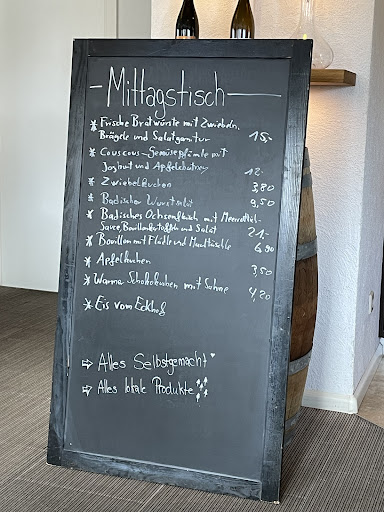 - Mittagstisch -
* Frische Bratwürste mit Zwiebeln,
Brägele und Salatgarnitur 15,-
* Couscous-Gemüsepfanne mit
Joghurt und Apfelchutney 12-
* Zwiebelkuchen 3,80
* Badischer Wurstsalat 9,50
* Badisches Ochsenfleisch mit Meerrettich-
Sauce, Bouillonkartoffeln und Salat 21,-
* Bouillon mit Flädle und Maultäschle 6,90
* Apfelkuchen 3,50
* Warmer Schokokuchen mit Sahne 4,20
* Eis vom Eckhof
⇨ Alles Selbstgemacht ♥
⇨ Alles lokale Produkte